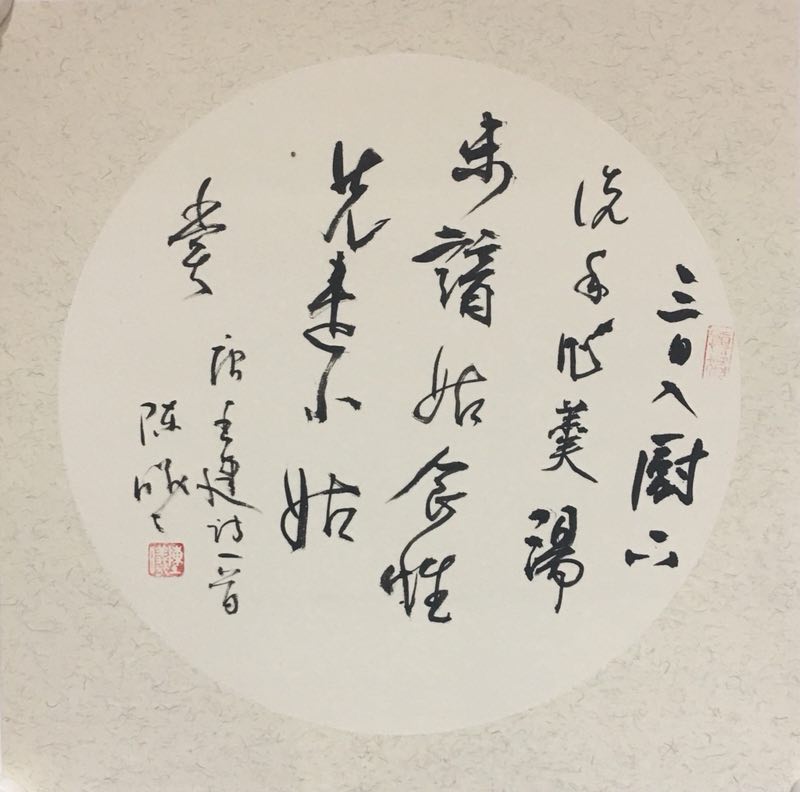 三日入厨下
洗手作羹湯
未諳姑食性
先遣小姑
嘗
唐王建诗一首
陈